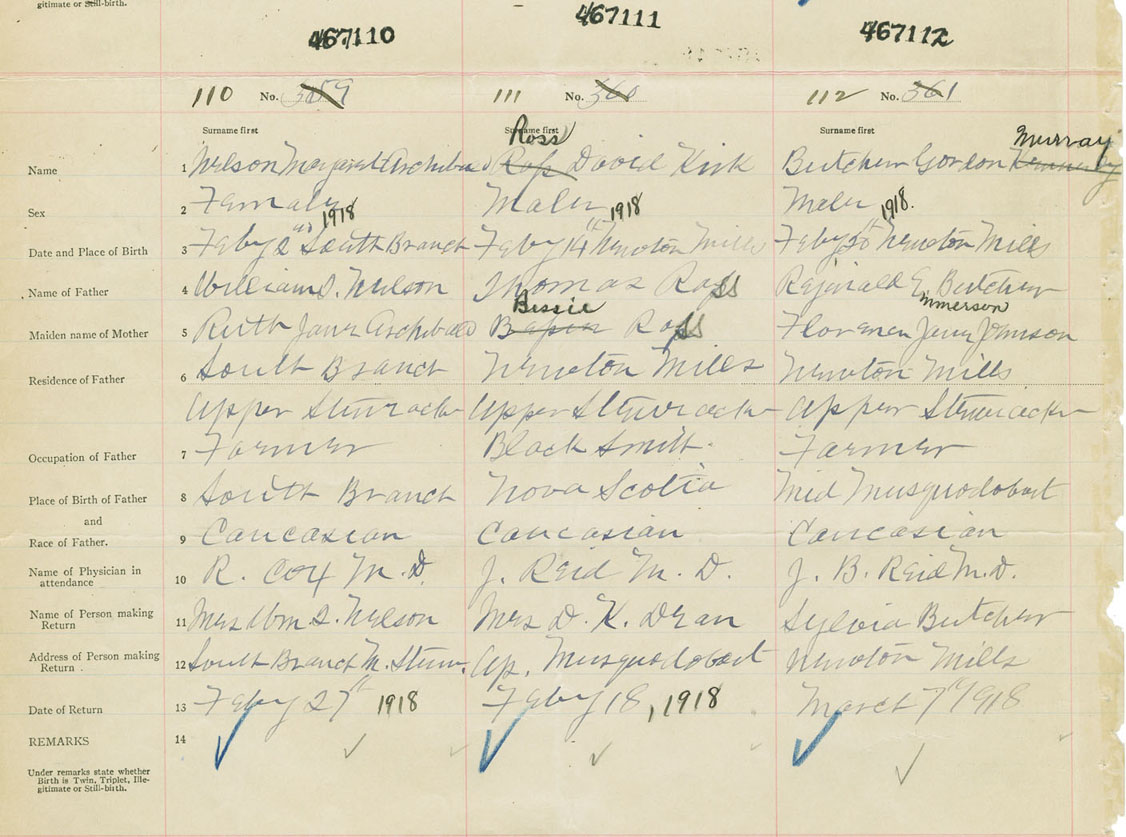 gitimate or Still-birth.
467110 467111 467112
110 No. 359 111 No. 360 112 No. 361
Surname first Surname first Surname first
Ross Murray
Name 1 Nelson Margaret Archibald Ross David Kirk Butcher Gordon
Sex 2 Female Male Male
1918 1918 1918.
Date and Place of Birth 3 Feby 2nd South Branch Feby 14th Newton Mills Feby 20th Newton Mills
Name of Father 4 William S. Nelson Thomas Ross Reginald E. Butcher
Bessie mmerson
Maiden name of Mother 5 Ruth Jane Archibald Ross Florence Jane Jamson
Residence of Father 6 South Branch Newton Mills Newton Mills
Upper Stewiacke Upper Stewiacke Upper Stewiacke
Occupation of Father 7 Farmer Black Smith. Farmer
Place of Birth of Father 8 South Branch Nova Scotia Mid Musquodoboit
and
Race of Father. 9 Caucasian Caucasian Caucasian
Name of Physician in attendance 10 R. Cox M.D. J. Reid M.D. J. B. Reid M.D.
Name of Person making Return 11 Mrs Wm S. Nelson Mrs D. K. Dean Sylvia Butcher
Address of Person making Return . 12 South Branch M. Stew. Up. Musquodoboit Newton Mills
Date of Return 13 Feby 27th 1918 Feby 18, 1918 March 7th 1918
REMARKS 14
Under remarks state whether
Birth is Twin, Triplet, Ille-
gitimate or Still-birth.